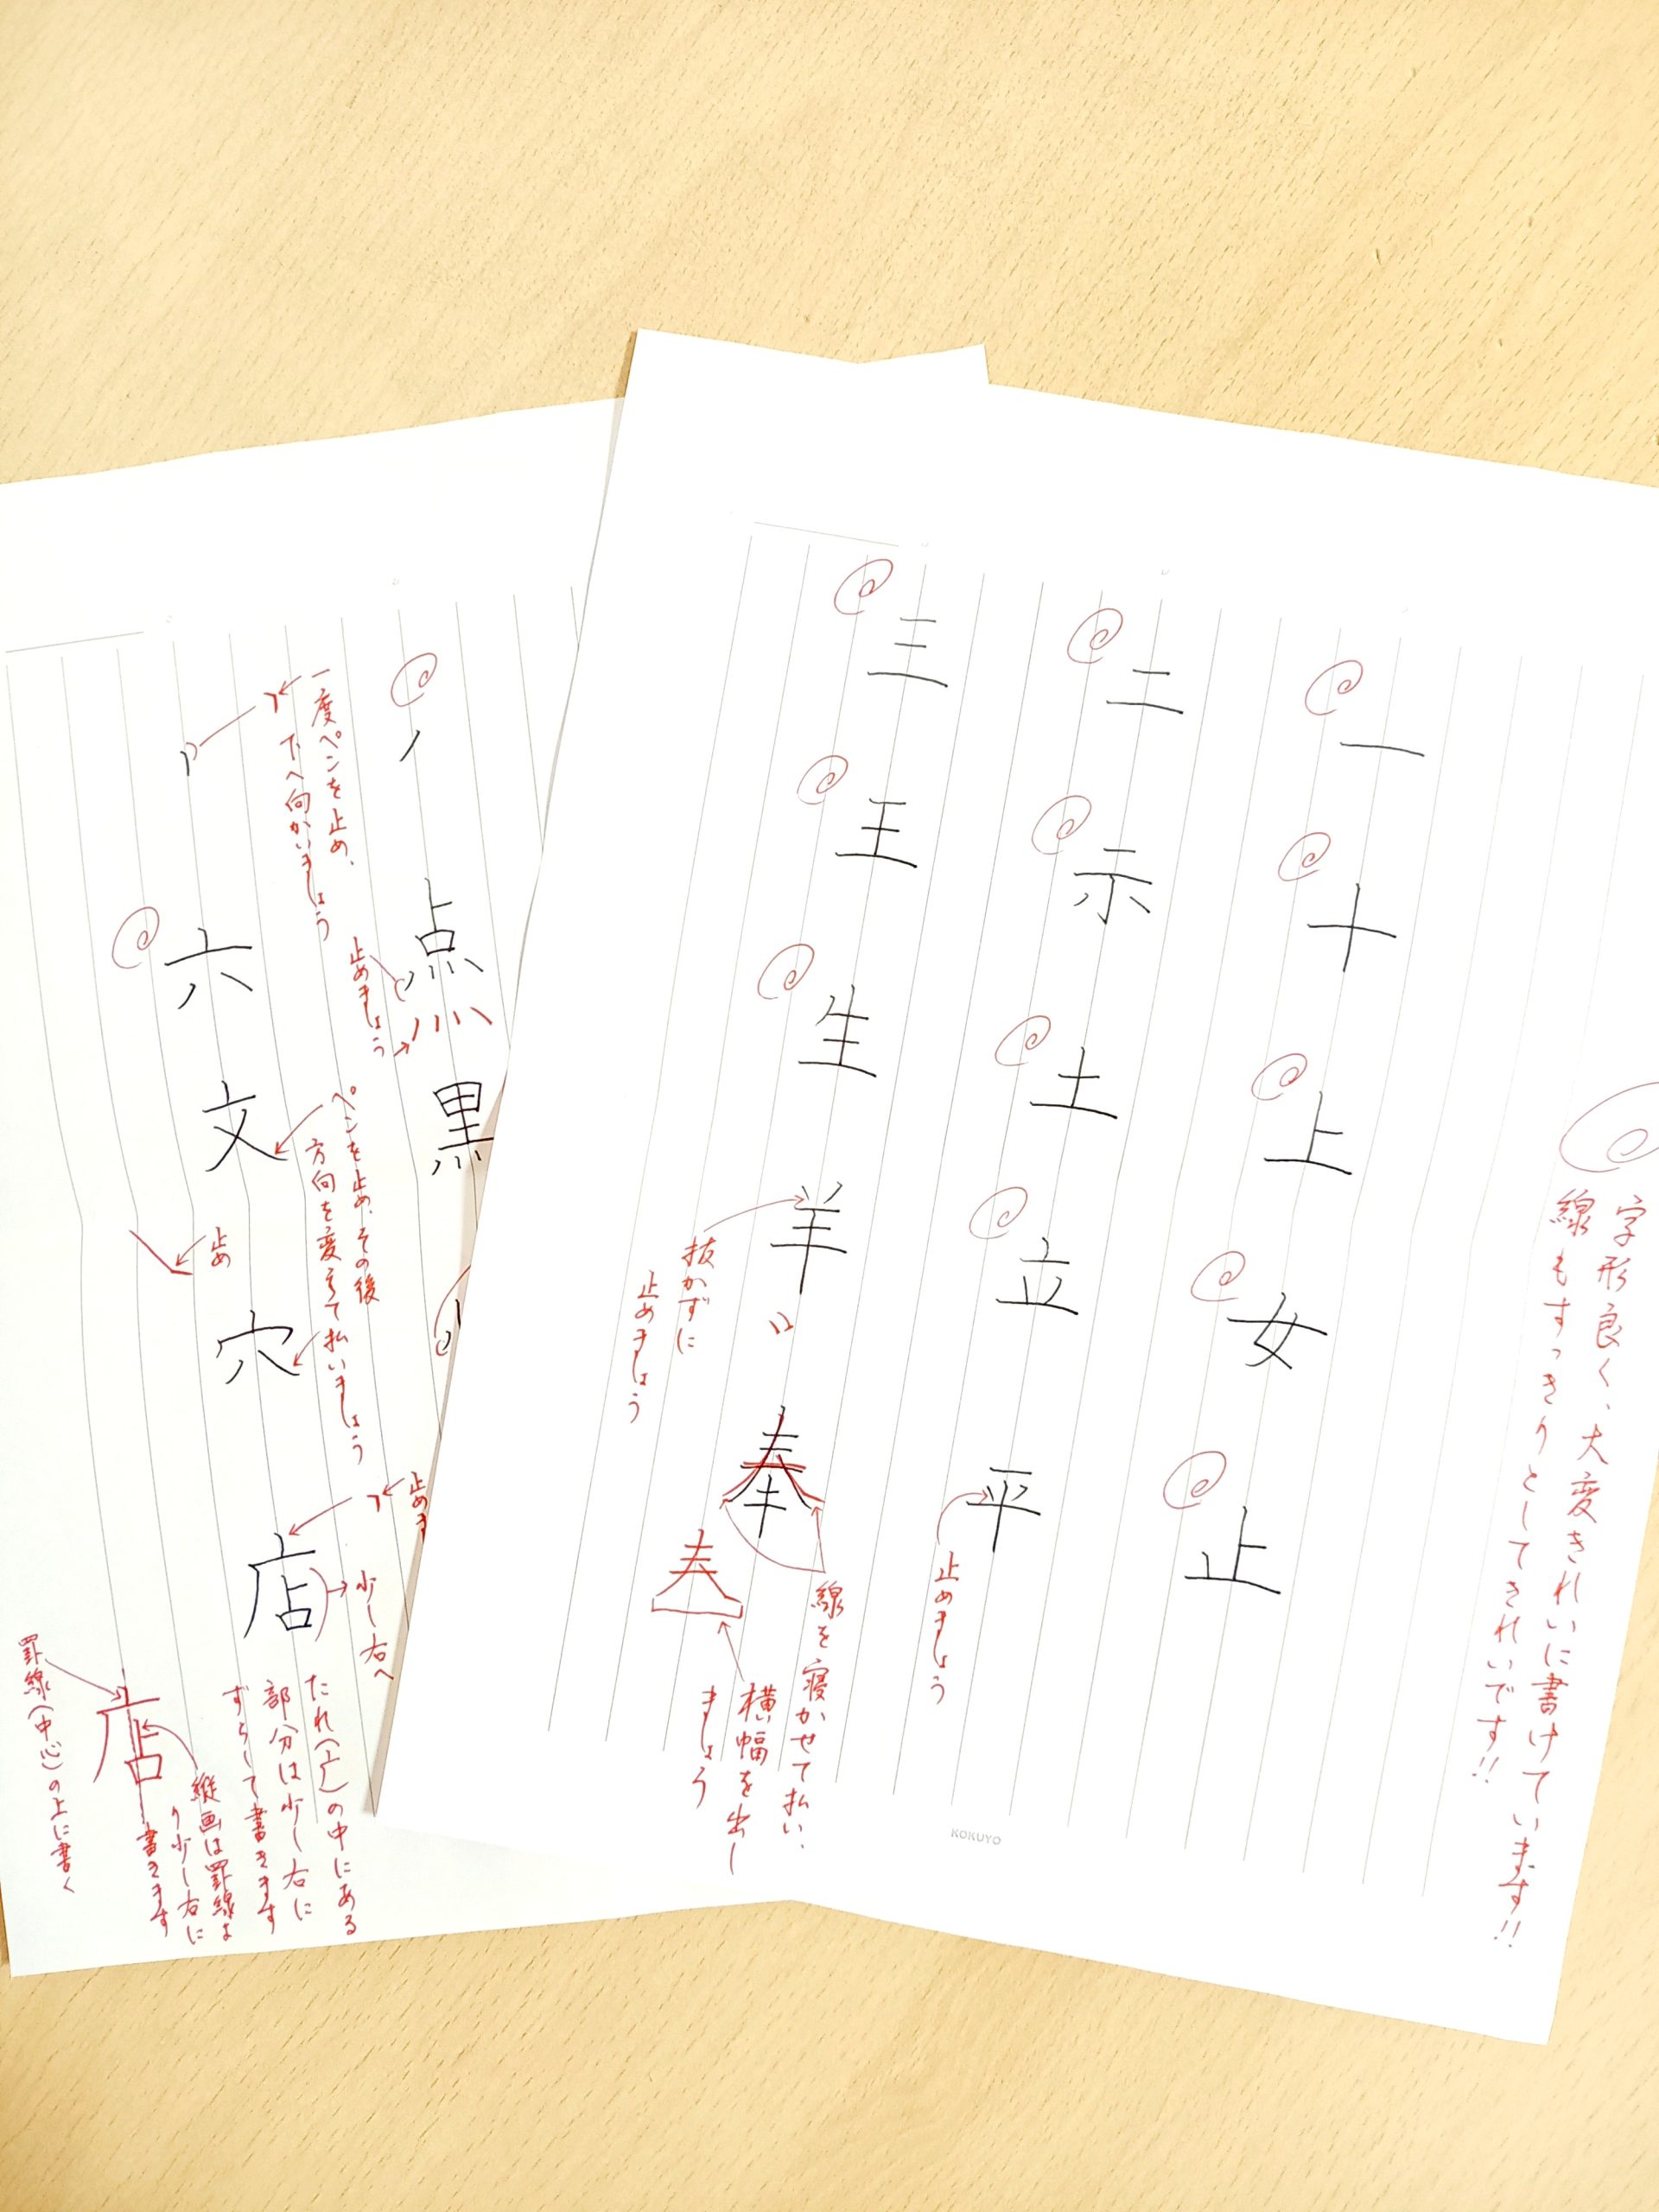 字形良く、大変きれいに書けています!!
線もすっきりとしてきれいです!!
一
十
上
女
止
二
示
土
立
平
止めましょう
三
王
生
羊
奉
抜かずに
止めましょう
線を寝かせて払い、
横幅を出し
ましょう
KOKUYO
点
黒
止めましょう
一度ペンを止め、
下へ向かいましょう
六
文
穴
店
ペンを止め、その後
方向を変えて払いましょう
止め
止めま
少し右へ
たれ(广)の中にある
部分は少し右に
ずらして書きます
店
縦画は罫線よ
り少し右に
書きます
罫線(中心)の上に書く